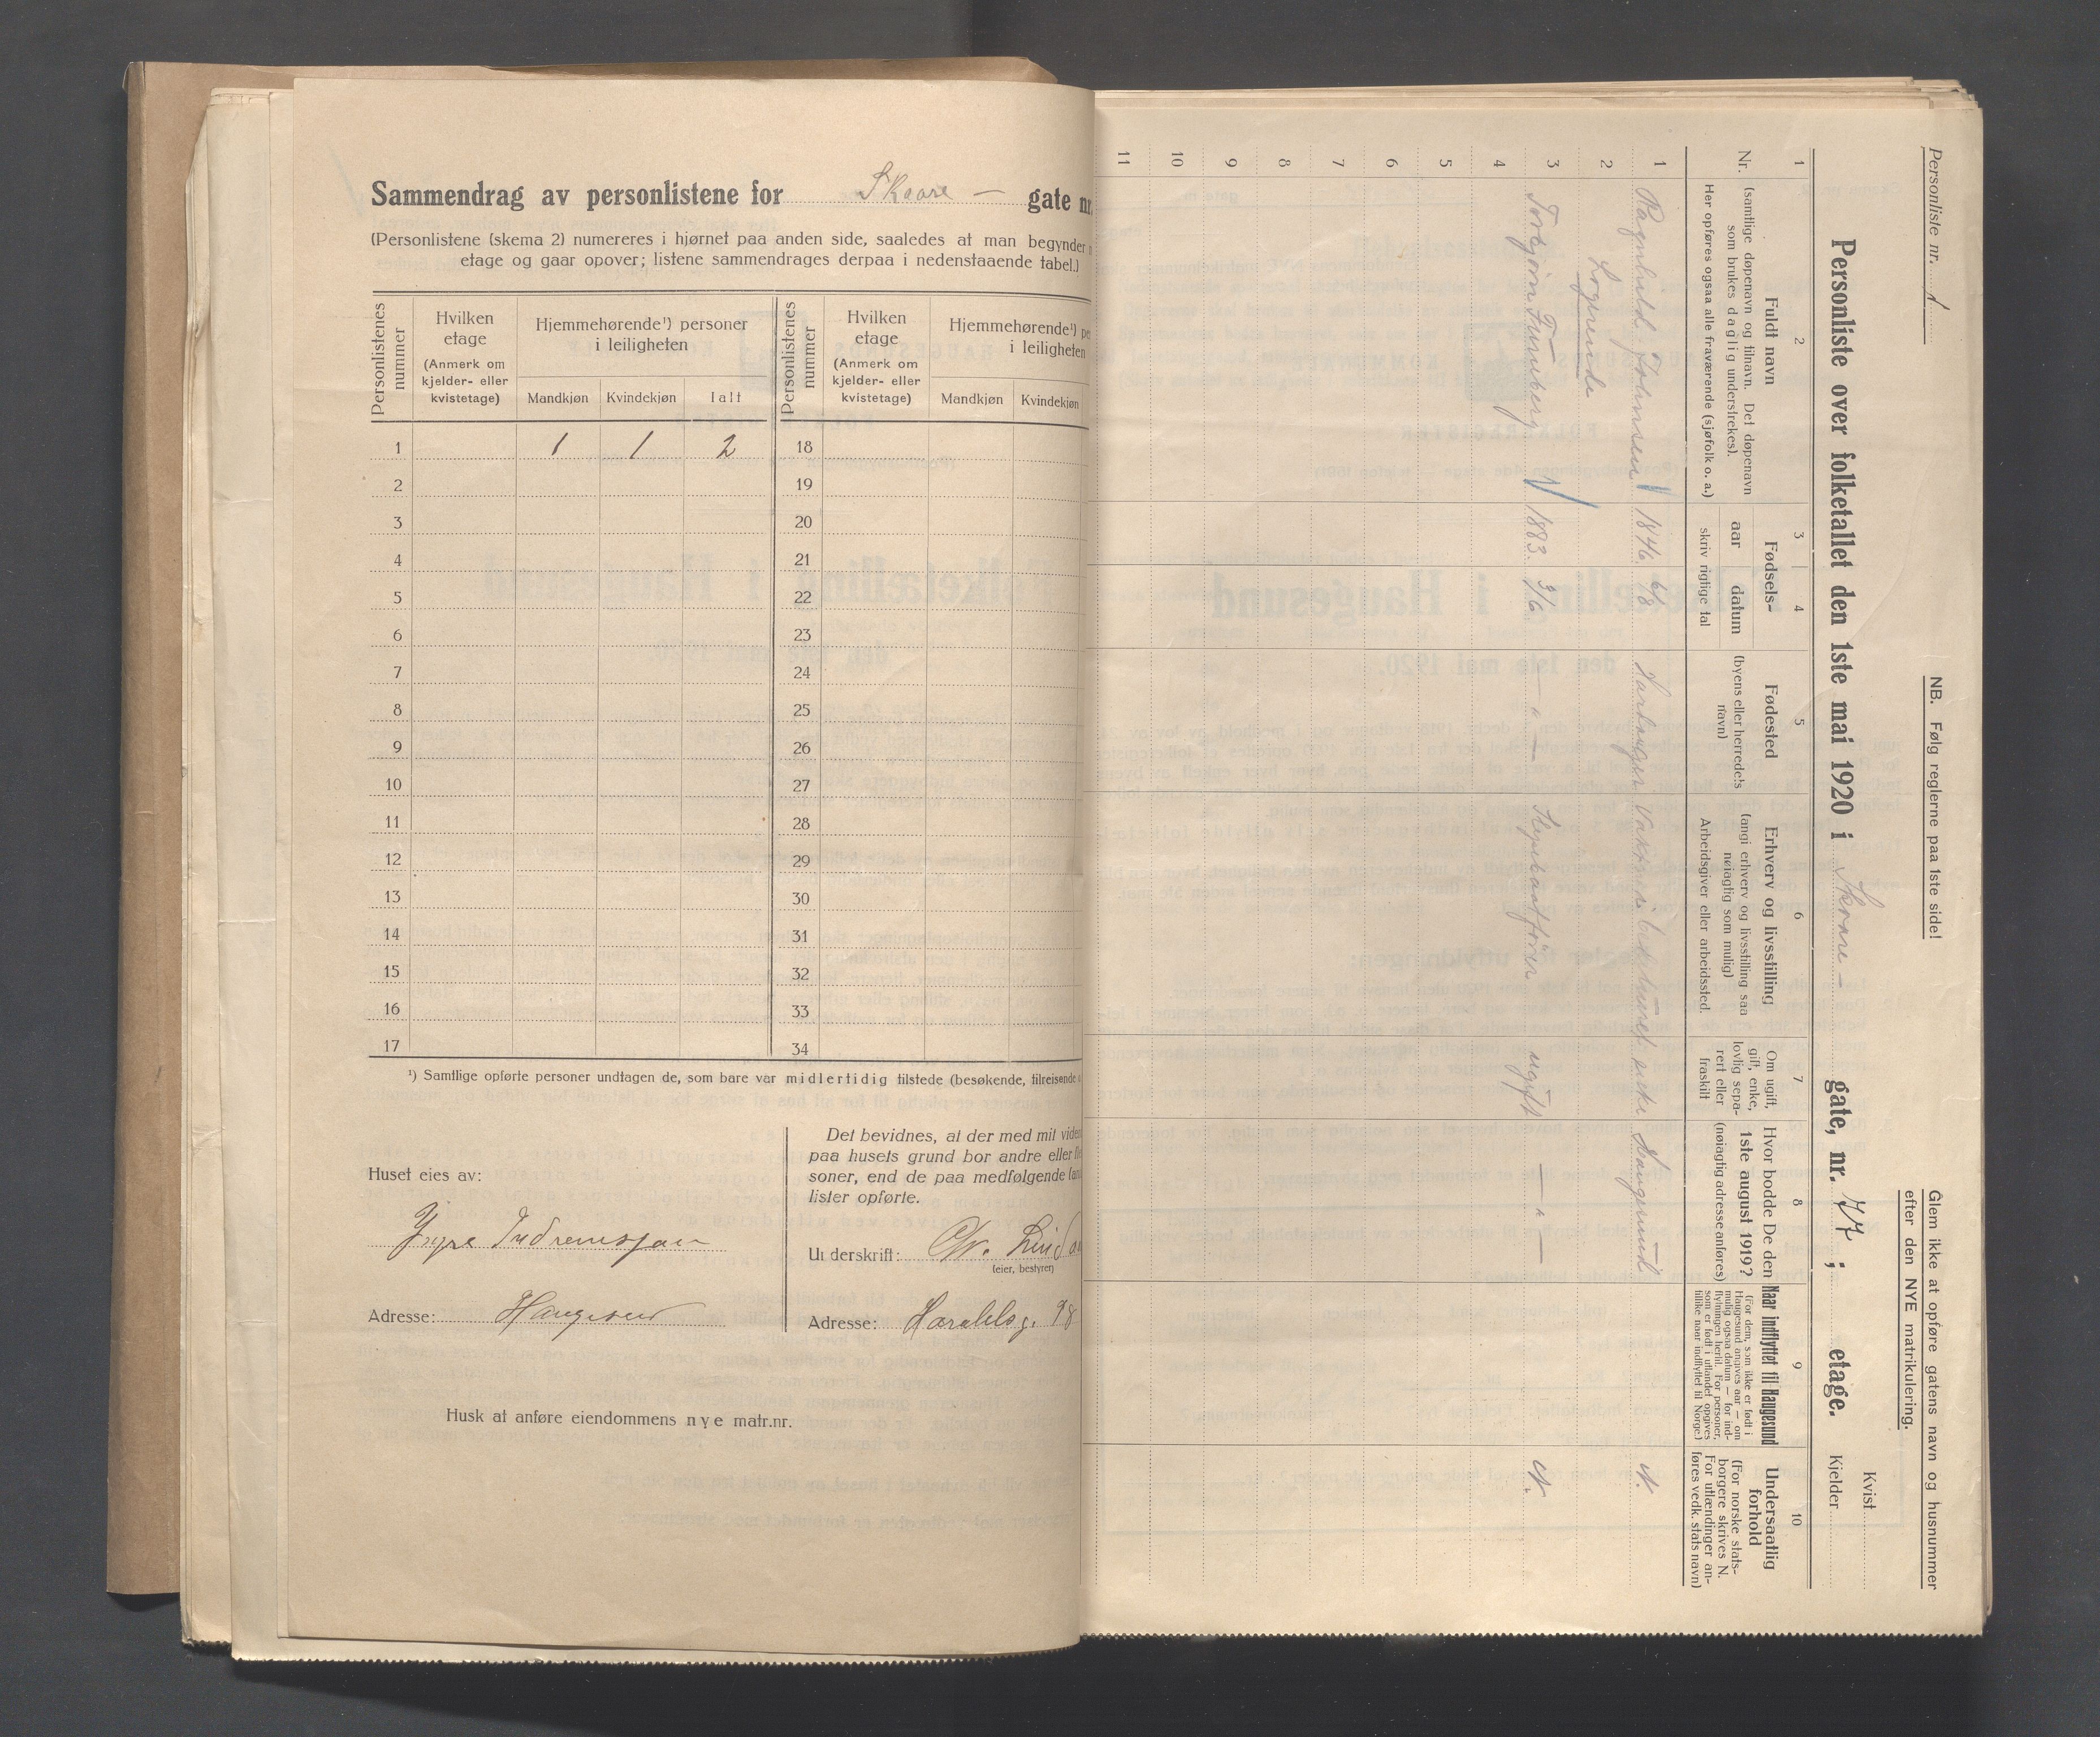 Sammendrag av personlistene for Skaare — gate nr.
(Personlistene (skema 2) numereres i hjørnet paa anden side, saaledes at man begynder
etage og gaar opover; listene sammendrages derpaa i nedenstaaende tabel.)
Personlistenes nummer
Hvilken etage
(Anmerk om kjelder- eller kvistetage)
Hjemmehørende¹) personer i leiligheten
Mandkjøn Kvindekjøn Ialt
Personlistenes nummer
Hvilken etage
(Anmerk om kjelder- eller kvistetage)
Hjemmehørende¹)
i leiligheten
Mandkjøn Kvindekjøn
1 1 1 2 18
2 19
3 20
4 21
5 22
6 23
7 24
8 25
9 26
10 27
11 28
12 29
13 30
14 31
15 32
16 33
17 34
¹) Samtlige opførte personer undtagen de, som bare var midlertidig tilstede (besøkende, tilreisende
Huset eies av:
Adresse: Haugesund
Det bevidnes, at der med mit
paa husets grund bor andre eller
soner, end de paa medfølgende
lister opførte.
Underskrift:
(eier, bestyrer)
Adresse: Haraldsg. 98
Husk at anføre eiendommens nye matr.nr.
Personliste nr. 1
NB. Følg reglerne paa 1ste side!
Glem ikke at opføre gatens navn og husnummer
efter den NYE matrikulering.
Personliste over folketallet den 1ste mai 1920 i Skaare — gate, nr. 77 ; etage.
Kvist
Kjelder
1 2 3 4 5 6 7 8 9 10
Nr.
Fuldt navn
(samtlige døpenavn og tilnavn. Det døpenavn
som brukes daglig understrekes).
Her opføres ogsaa alle fraværende (sjøfolk o. a.)
Fødsels-
aar datum
skriv rigtige tal
Fødested
(byens eller herredets
navn)
Erhverv og livsstilling
(angi erhverv og livsstilling saa
nøiagtig som mulig)
Arbeidsgiver eller arbeidssted.
Om ugift,
gift, enke,
lovlig sepa-
rert eller
fraskilt
Hvor bodde De den
1ste august 1919?
(nøiagtig adresse anføres)
Naar indflyttet til Haugesund
(For dem, som ikke er født i
Haugesund angives aar — om
mulig ogsaa datum — for ind-
flytningen hertil. For personer,
som er født i utlandet opgives
tillike naar indflyttet til Norge.)
Undersaatlig
forhold
(For norske stats-
borgere skrives N.
For utlændinger an-
føres vedk. stats navn)
1 Ragnhild Johnsen 1846 6/8 enke Haugesund N.
2 Logerende
3 Torbjørn 1883. 3/6 — " — ugift — " — N.
4
5
6
7
8
9
10
11